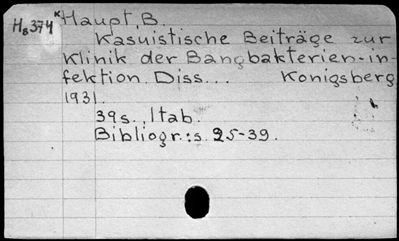 H₈374 ᴷHaupt, B.
Kasuistische Beiträge zur
Klinik der Bangbakterien-in-
fektion. Diss... Konigsberg
1931.
39s., 1tab.
Bibliogr.: s. 25-39.